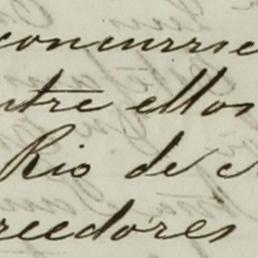 concurrie
ntre ellos
Rio de
reedores